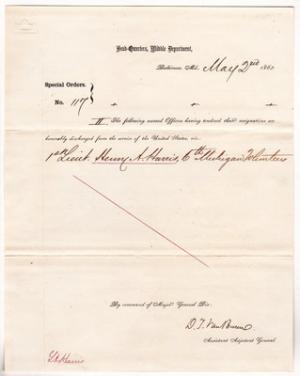 Head-Quarters, Middle Department,
Baltimore, Md. May 2nd 186
Special Orders.
No. 117
II The following named Officer having tendered their resignation are
honorably discharged from the service of the United States, viz.
1st Lieut. Henry A. Harris, 6th Michigan Volunteers
By command of Major General Dix.
D. T. Van Buren
Assistant Adjutant General.
Lt. Harris